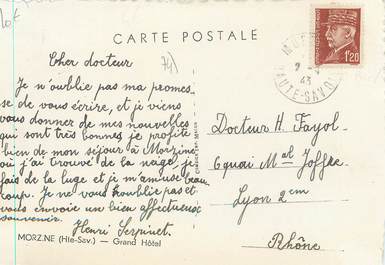 lot
CARTE POSTALE
74)
Cher docteur
Je n'oublie pas ma promes-
se de vous écrire, et je viens
vous donner de mes nouvelles
qui sont très bonnes je profite
bien de mon séjour à Morzine
où j'ai trouvé de la neige, je
fais de la luge et je m'amuse beau-
coup. Je ne vous oublie pas et
vous envoie un bien affectueux
souvenir.
Henri Serpinet.
MORZINE (Hte-Sav.) — Grand Hôtel
43
HAUTE-SAVOIE
1f20
Docteur H. Fayol
6 quai Mal Joffre
Lyon 2em
Rhône